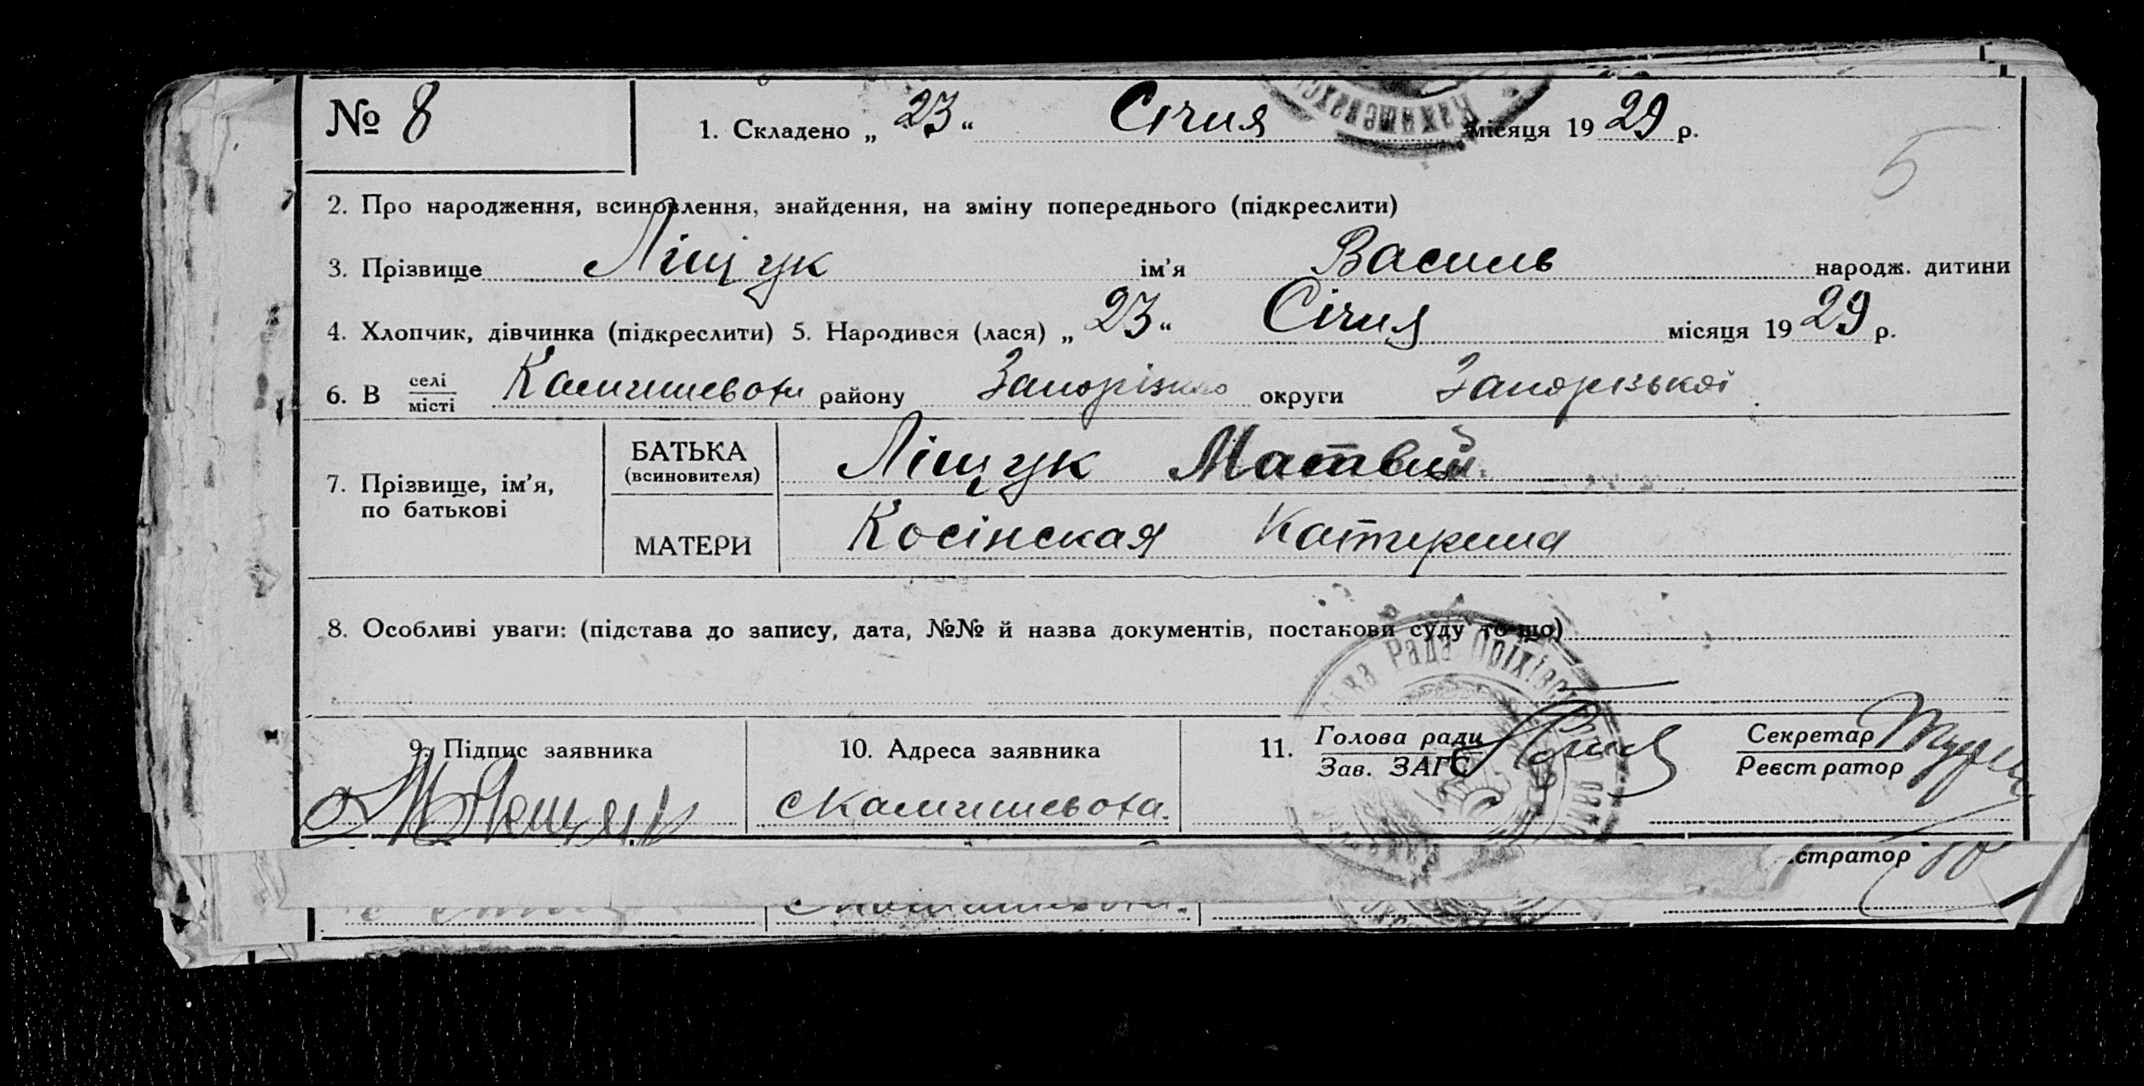 № 8 1. Складено „ 23 “ Січня місяця 19 29 р.
5
2. Про народження, всиновлення, знайдення, на зміну попереднього (підкреслити)
3. Прізвище Ліщук ім’я Василь народж. дитини
4. Хлопчик, дівчинка (підкреслити) 5. Народився (лася) „ 23 “ Січня місяця 19 29 р.
6. В селі місті Камишеваха району Запорізько округи Запорізької
7. Прізвище, ім’я, по батькові
БАТЬКА (всиновителя) Ліщук Матвий
МАТЕРИ Косінская Катерина
8. Особливі уваги: (підстава до запису, дата, №№ й назва документів, постанови суду то-що)
Рада Оріхівс
9. Підпис заявника 10. Адреса заявника 11. Голова ради Зав. ЗАГС Секретар Реєстратор
с Камишеваха.
стратор